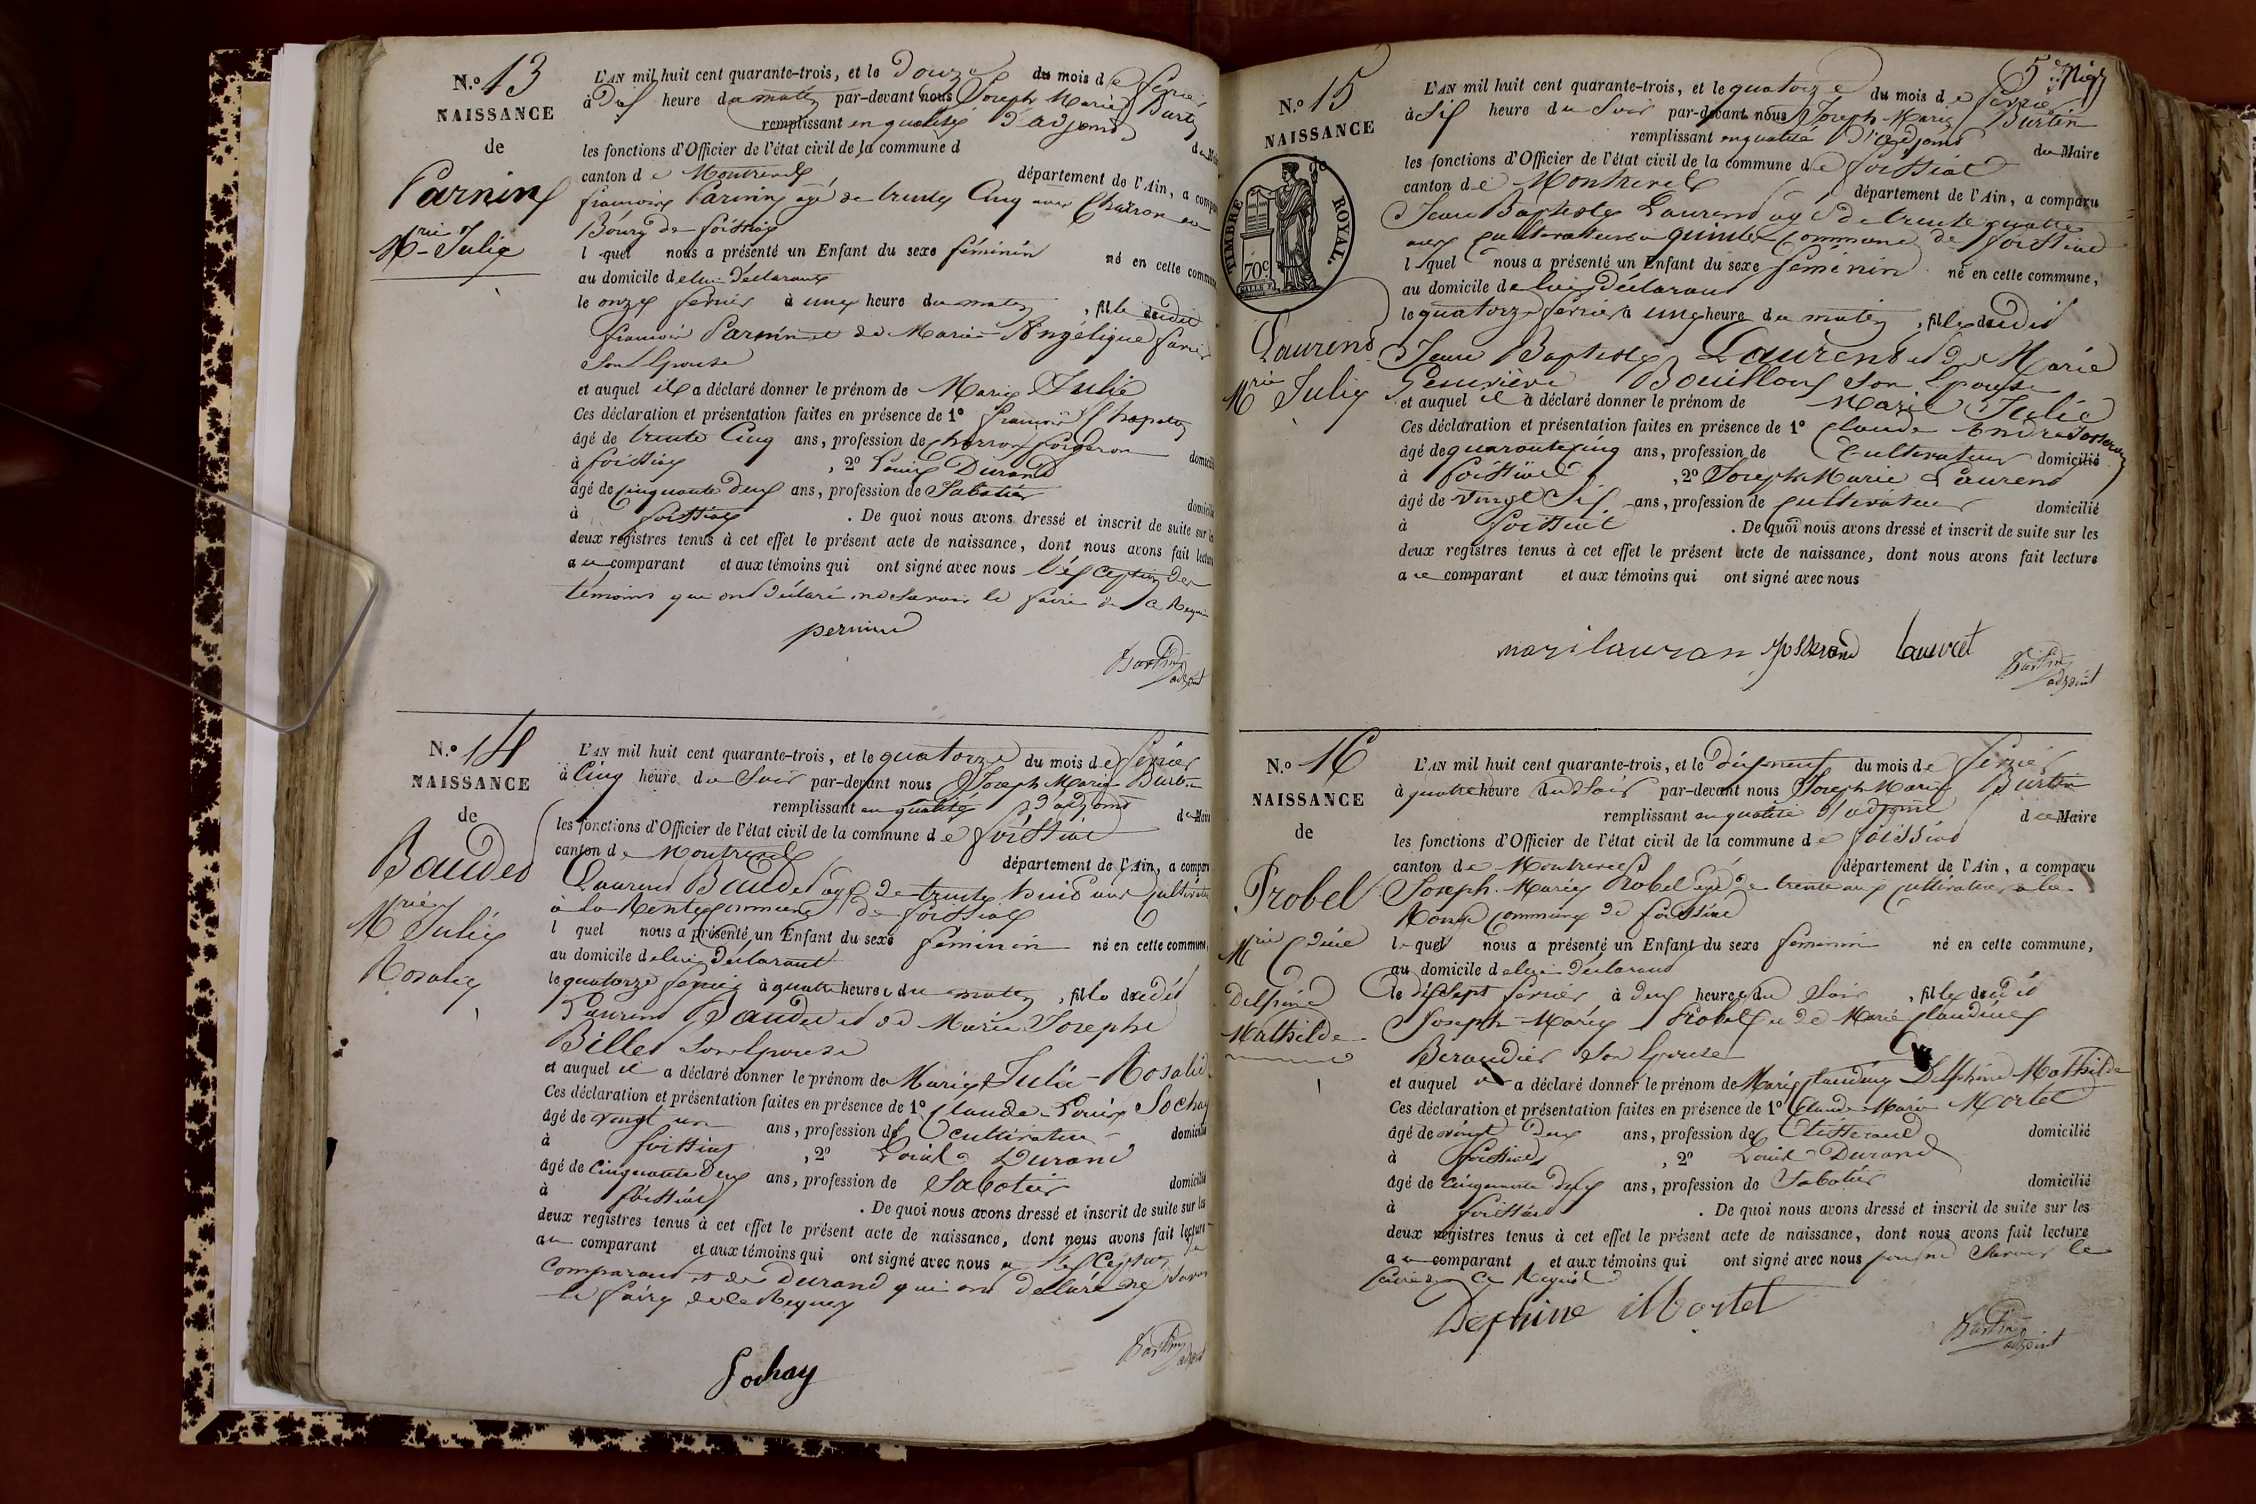 N.o 13
NAISSANCE
de
Parnin
Mrie Julie
L'AN mil huit cent quarante-trois, et le douze du mois de février
à dix heure du matin par-devant nous Joseph Marie Burtin
remplissant en qualité d'adjoint du Maire
les fonctions d'Officier de l'état civil de la commune d
canton de Montrevel département de l'Ain, a comparu
françois Parnin agé de trente Cinq ans Charron au
Bourg de foissiat
l quel nous a présenté un Enfant du sexe féminin né en cette commune
au domicile de lui déclarant
le onze février à une heure du matin, fille dudit
françois Parnin et de Marie Angélique
son Epouse
et auquel il a déclaré donner le prénom de Marie Julie
Ces déclaration et présentation faites en présence de 1o françois
âgé de trente Cinq ans, profession de domicilié
à foissiat, 2o Louis Durand
âgé de Cinquante deux ans, profession de Sabotier domicilié
à foissiat. De quoi nous avons dressé et inscrit de suite sur les
deux registres tenus à cet effet le présent acte de naissance, dont nous avons fait lecture
au comparant et aux témoins qui ont signé avec nous à l'exception des
témoins qui ont déclaré ne savoir le faire de ce Requis
pernin
Burtin
adjoint
N.o 14
NAISSANCE
de
Baudet
Mrie Julie
Rosalie
L'AN mil huit cent quarante-trois, et le quatorze du mois de février
à Cinq heure du Soir par-devant nous Joseph Marie Burtin
remplissant en qualité d'adjoint du Maire
les fonctions d'Officier de l'état civil de la commune de foissiat
canton de Montrevel département de l'Ain, a comparu
Laurent Baudet agé de trente huit ans Cultivateur
à la commune de foissiat
l quel nous a présenté un Enfant du sexe féminin né en cette commune,
au domicile de lui déclarant
le quatorze février à quatre heure du matin, fille dudit
Laurent Baudet et de Marie Josephe
Billet son Epouse
et auquel il a déclaré donner le prénom de Marie Julie-Rosalie
Ces déclaration et présentation faites en présence de 1o Claude-Louis Sochay
âgé de vingt un ans, profession de cultivateur domicilié
à foissiat, 2o Louis Durand
âgé de Cinquante deux ans, profession de Sabotier domicilié
à foissiat. De quoi nous avons dressé et inscrit de suite sur les
deux registres tenus à cet effet le présent acte de naissance, dont nous avons fait lecture
au comparant et aux témoins qui ont signé avec nous à l'exception du
Comparant et de Durand qui ont déclaré ne savoir
le faire de ce Requis
Sochay
Burtin
adjoint
5e
N.o 15
NAISSANCE
de
TIMBRE ROYAL.
70c
Laurent
Mrie Julie
L'AN mil huit cent quarante-trois, et le quatorze du mois de février
à six heure du Soir par-devant nous Joseph Marie Burtin
remplissant en qualité d'adjoint du Maire
les fonctions d'Officier de l'état civil de la commune de foissiat
canton de Montrevel département de l'Ain, a comparu
Jean Baptiste Laurent agé de trente quatre
ans cultivateur à commune de foissiat
l quel nous a présenté un Enfant du sexe féminin né en cette commune,
au domicile de lui déclarant
le quatorze février à une heure du matin, fille dudit
Jean Baptiste Laurent et de Marie
Genevieve Bouillon son Epouse
et auquel il a déclaré donner le prénom de Marie Julie
Ces déclaration et présentation faites en présence de 1o Claude André Josserand
âgé de quarante cinq ans, profession de Cultivateur domicilié
à foissiat, 2o Joseph Marie Laurent
âgé de vingt six ans, profession de cultivateur domicilié
à foissiat. De quoi nous avons dressé et inscrit de suite sur les
deux registres tenus à cet effet le présent acte de naissance, dont nous avons fait lecture
au comparant et aux témoins qui ont signé avec nous
mari lauran Josserand
Burtin
adjoint
N.o 16
NAISSANCE
de
Probel
Mrie Cdine
Delphine
Mathilde
L'AN mil huit cent quarante-trois, et le dix neuf du mois de février
à quatre heure du Soir par-devant nous Joseph Marie Burtin
remplissant en qualité d'adjoint du Maire
les fonctions d'Officier de l'état civil de la commune de foissiat
canton de Montrevel département de l'Ain, a comparu
Joseph-Marie Probel agé de trente ans cultivateur à la
commune de foissiat
le quel nous a présenté un Enfant du sexe féminin né en cette commune,
au domicile de lui déclarant
le dix sept février à deux heures du Soir, fille dudit
Joseph-Marie Probel et de Marie Claudine
Beraudier son Epouse
et auquel il a déclaré donner le prénom de Marie Claudine Delphine Mathilde
Ces déclaration et présentation faites en présence de 1o Claude Marie Mortel
âgé de vingt deux ans, profession de tisserand domicilié
à foissiat, 2o Louis Durand
âgé de cinquante deux ans, profession de Sabotier domicilié
à foissiat. De quoi nous avons dressé et inscrit de suite sur les
deux registres tenus à cet effet le présent acte de naissance, dont nous avons fait lecture
au comparant et aux témoins qui ont signé avec nous pour ne savoir le
faire de ce Requis
Dephine Mortel
Burtin
adjoint